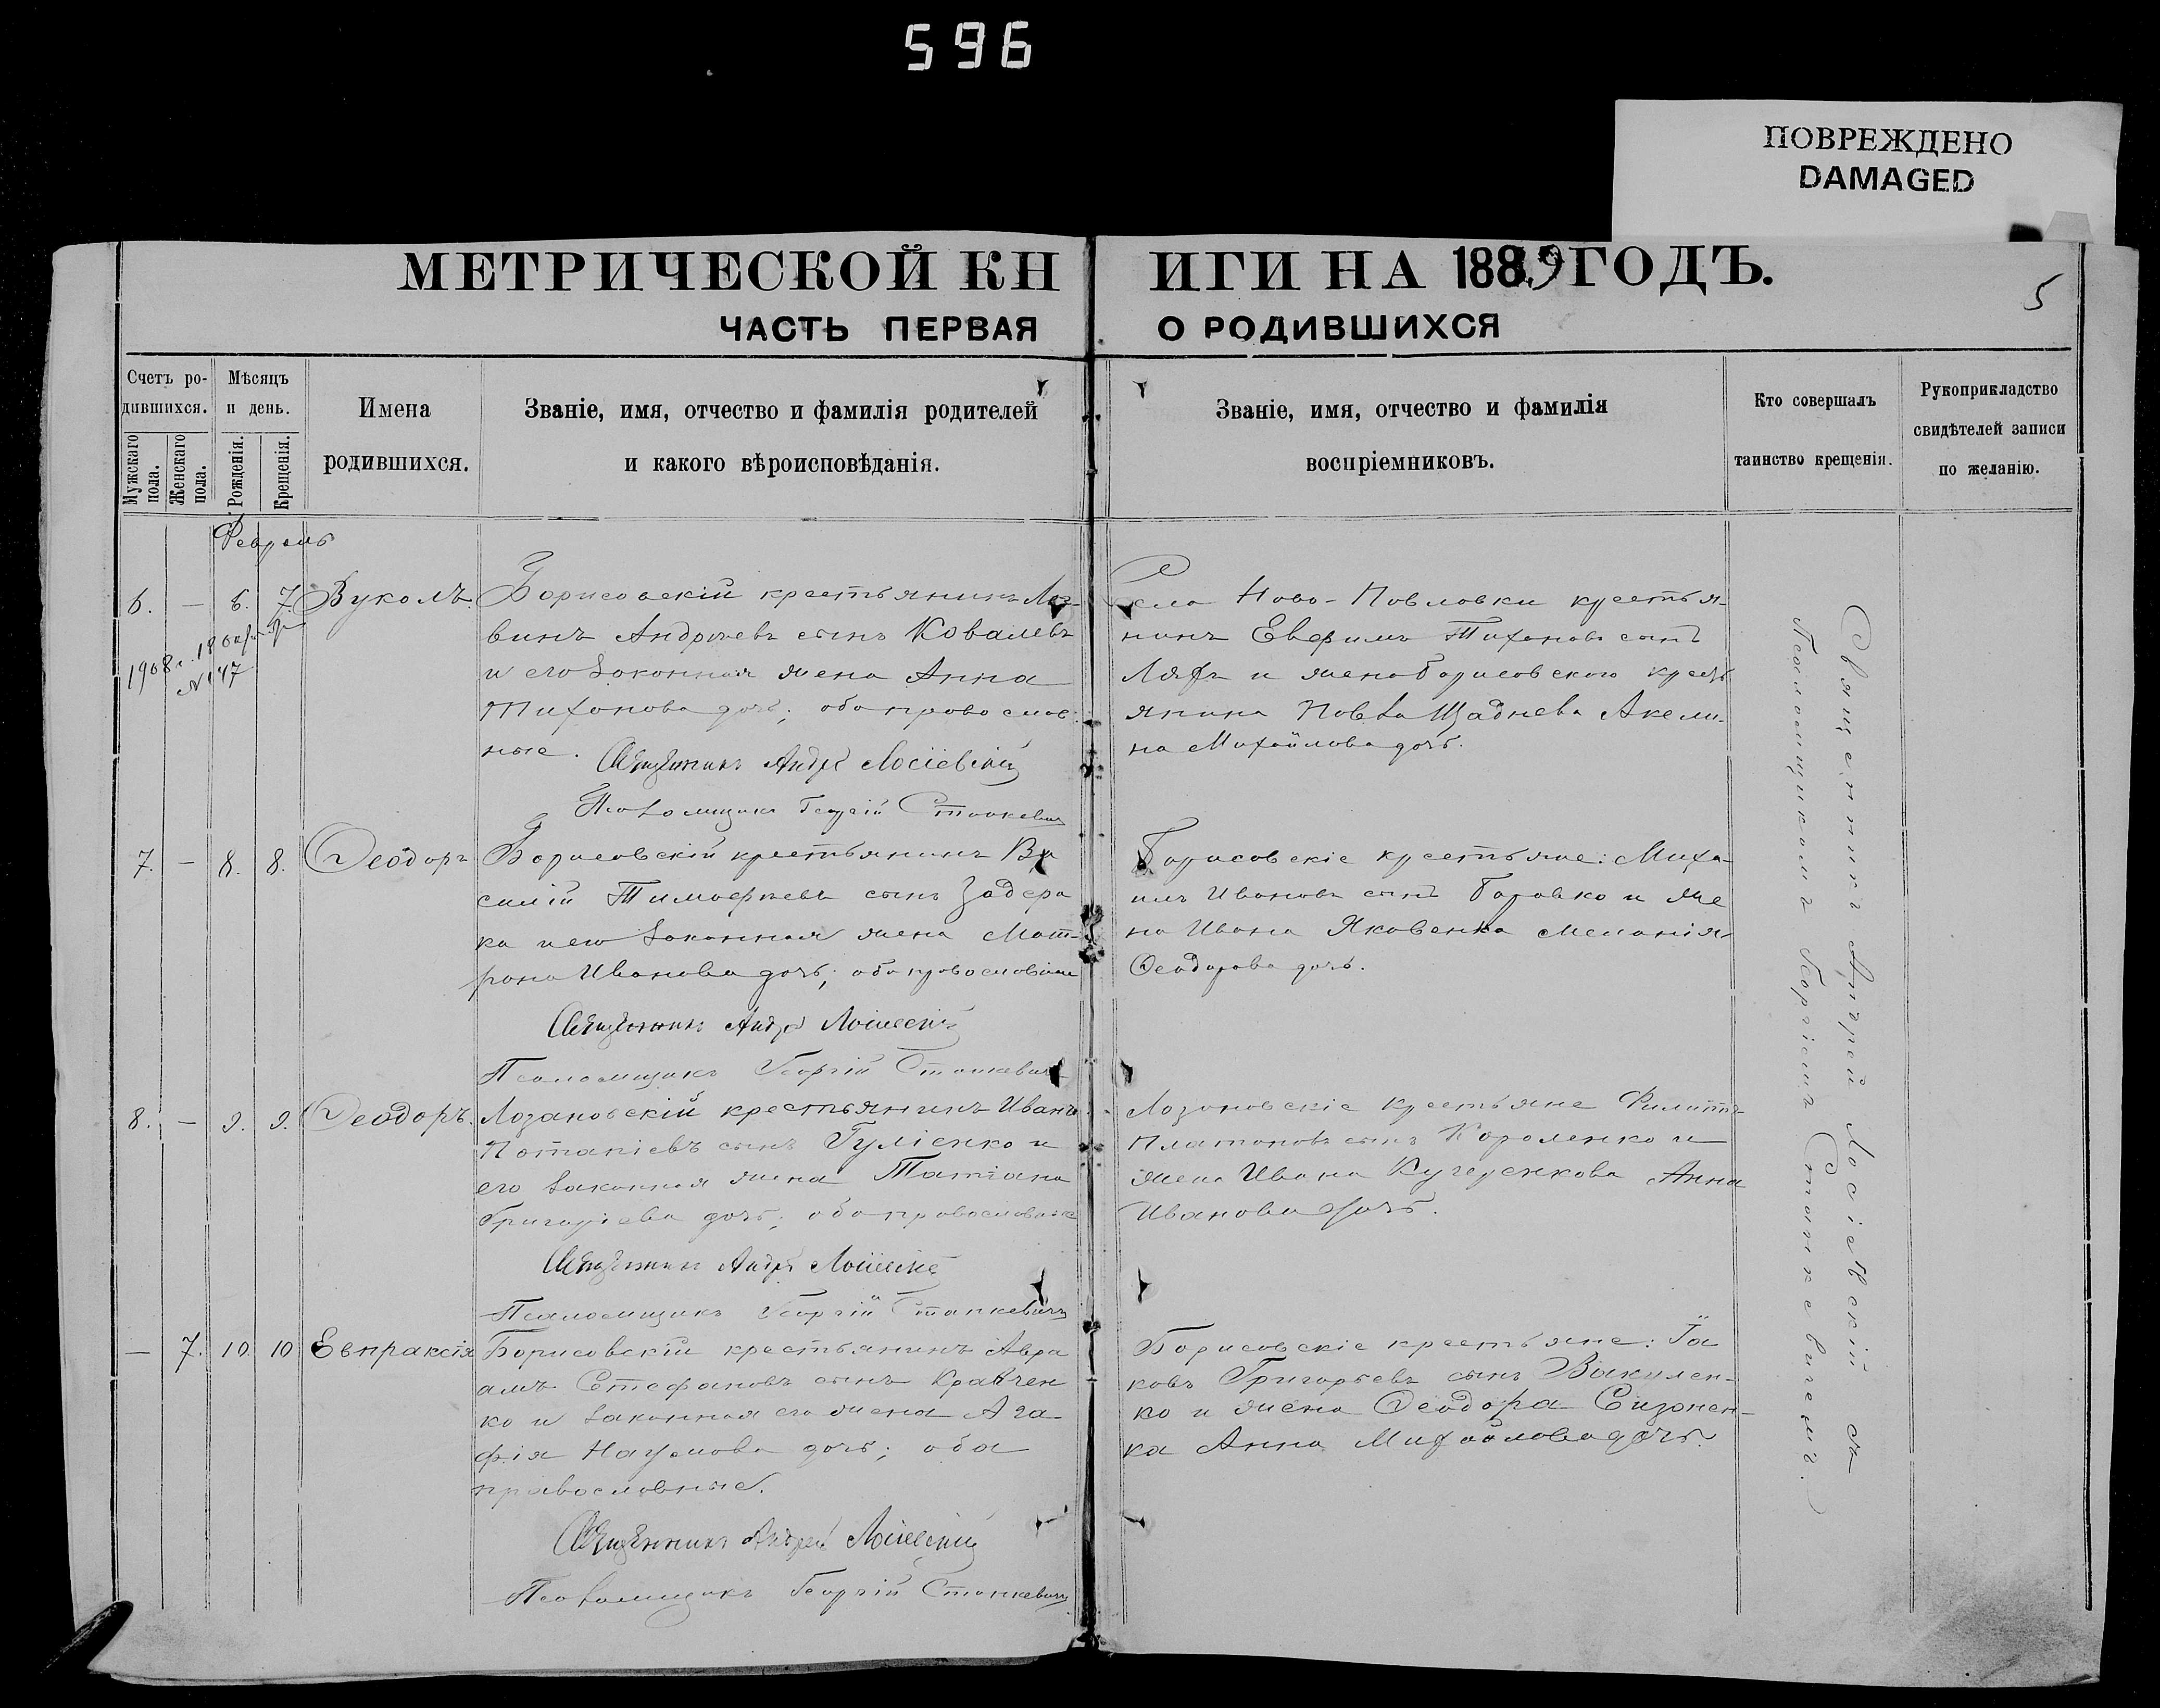 596
ПОВРЕЖДЕНО
DAMAGED
МЕТРИЧЕСКОЙ КН ИГИ НА 1889 ГОДЪ.
5
ЧАСТЬ ПЕРВАЯ О РОДИВШИХСЯ
Счетъ ро-
дившихся.
Мужскаго пола.
Женскаго пола.
Мѣсяцъ
и день.
Рожденія.
Крещенія.
Имена
родившихся.
Званіе, имя, отчество и фамилія родителей
и какого вѣроисповѣданія.
Званіе, имя, отчество и фамилія
воспріемниковъ.
Кто совершалъ
таинство крещенія.
Рукоприкладство
свидѣтелей записи
по желанію.
Февраль
6. — 6. 7. Вуколъ.
1908 г. 18
N 147
Борисовскій крестьянинъ Лог-
винъ Андреевъ сынъ Ковалевъ
и его законная жена Анна
Тихонова дочь; оба православ-
ные.
Священникъ Андрей Лосіевскій
Псаломщикъ Георгій Станкевичъ
Села Ново-Павловки крестья-
нинъ Евфимъ Тихоновъ сынъ
Ляхъ и жена Борисовскаго крест
янина Павла Щаднева Акели-
на Михайлова дочь.
7. — 8. 8. Ѳеодоръ
Борисовскій крестьянинъ Ва
силій Тимофеевъ сынъ Задера
ка и его законная жена Мат-
рона Иванова дочь; оба православные
Священникъ Андрей Лосіевскій
Псаломщикъ Георгій Станкевичъ
Борисовскіе крестьяне: Миха-
илъ Ивановъ сынъ Боровко и же
на Ивана Яковенка Меланія
Ѳеодорова дочь.
8. — 9. 9. Ѳеодоръ.
Лозановскій крестьянинъ Иванъ
Потапіевъ сынъ Гуліенко и
его законная жена Татіана
Григоріева дочь; оба православные
Священникъ Андрей Лосіевскій
Псаломщикъ Георгій Станкевичъ
Лозановскіе крестьяне Филиппъ
Платоновъ сынъ Короленко и
жена Ивана Кучеренкова Анна
Иванова дочь.
— 7. 10 10 Евпраксія
Борисовскій крестьянинъ Авра
амъ Стефановъ сынъ Кравчен
ко и законная его жена Ага-
фія Наумова дочь; оба
православные.
Священникъ Андрей Лосіевскій
Псаломщикъ Георгій Станкевичъ
Борисовскіе крестьяне: Іа
ковъ Григорьевъ сынъ Вакулен-
ко и жена Ѳеодора Сизонен-
ка Анна Михайлова дочь.
Священникъ Андрей Лосіевскій съ
Псаломщикомъ Георгіемъ Станкевичемъ.